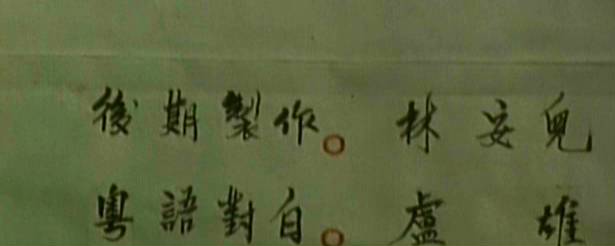 後期製作。林安兒
粵語對白。盧雄